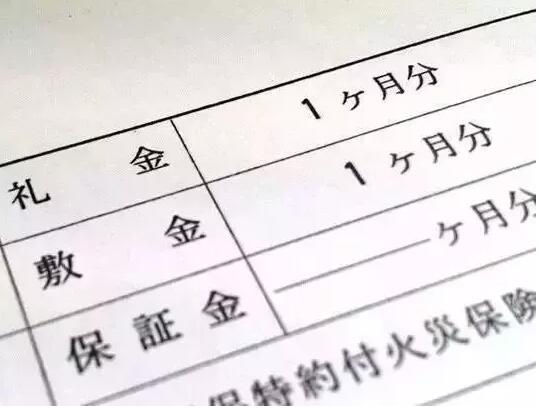 礼金 1ヶ月分
敷金 1ヶ月分
保証金 ヶ月分
特約付火災保険